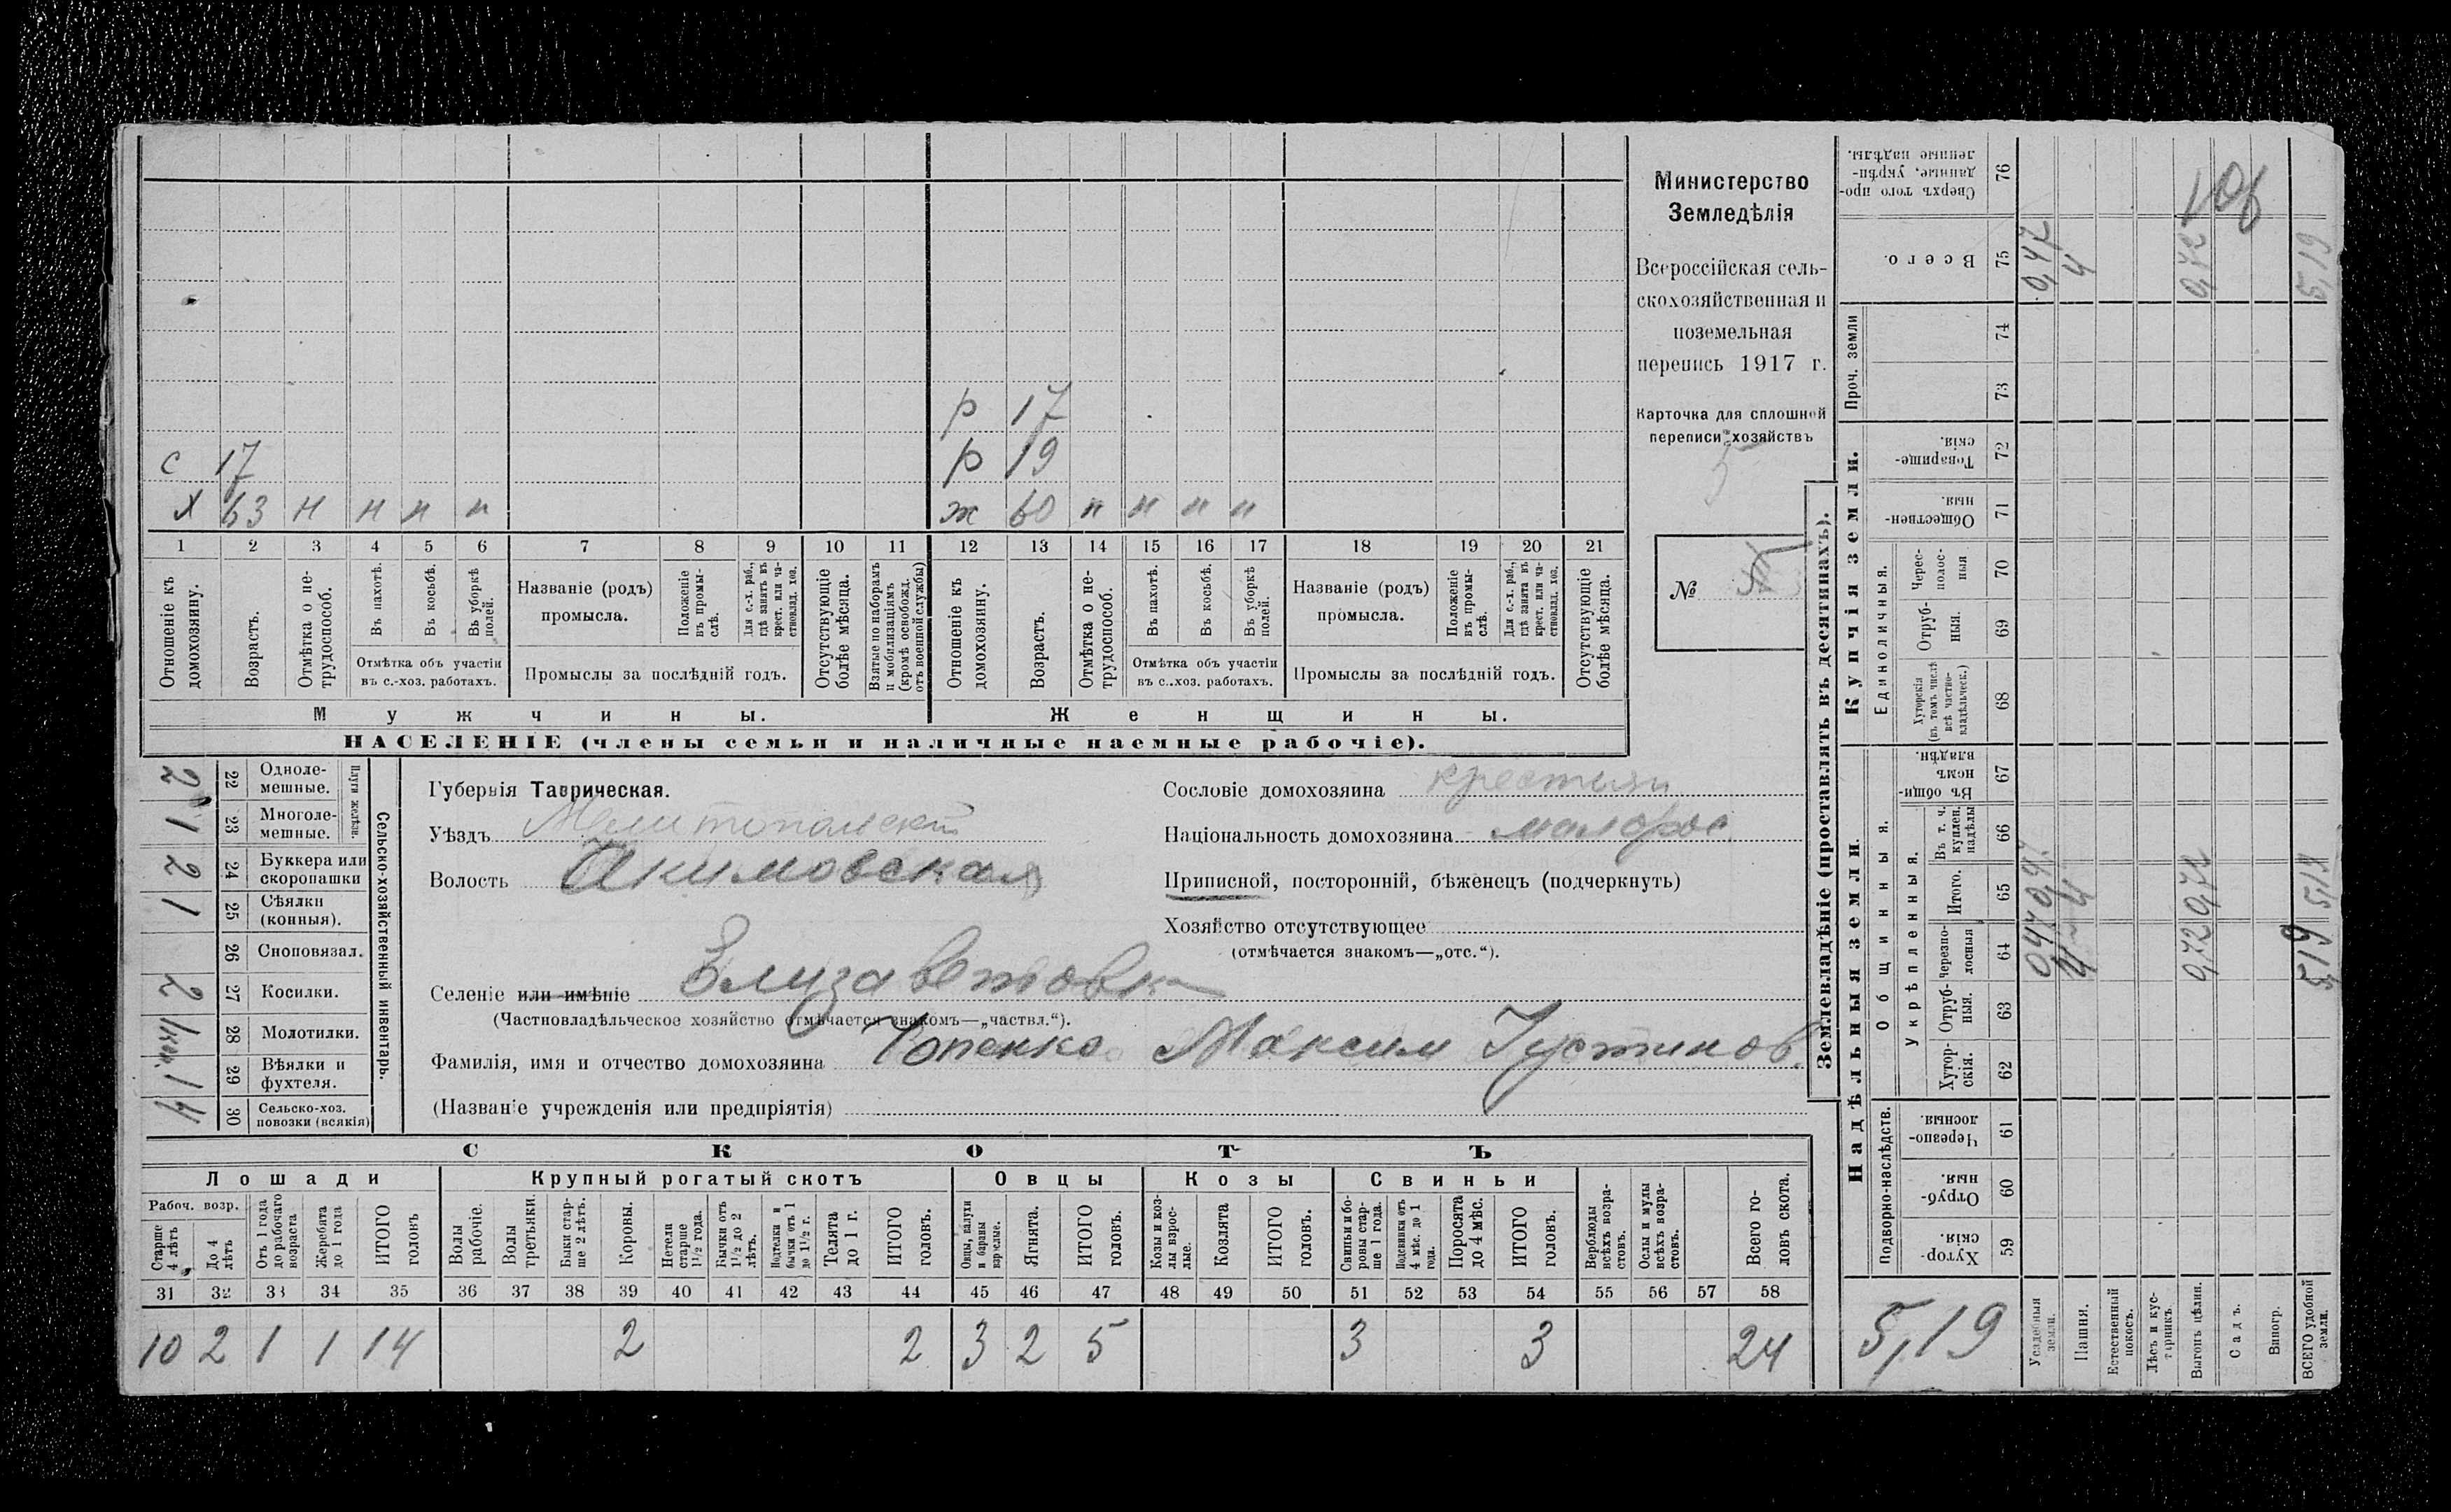 Министерство
Земледѣлія
Всероссійская сель-
скохозяйственная и
поземельная
перепись 1917 г.
Карточка для сплошной
переписи хозяйствъ
5
№ 5
р 17
с 17 р 19
х 63 н н н н ж 60 н н н н
1 2 3 4 5 6 7 8 9 10 11 12 13 14 15 16 17 18 19 20 21
Отношеніе къ домохозяину.
Возрастъ.
Отмѣтка о не-трудоспособ.
Въ пахотѣ.
Въ косьбѣ.
Въ уборкѣ полей.
Отмѣтка объ участіи
въ с.-хоз. работахъ.
Названіе (родъ)
промысла.
Положеніе въ промы-слѣ.
Для с.-х. раб., гдѣ занятъ въ крест. или ча-стновлад. хоз.
Промыслы за послѣдній годъ.
Отсутствующіе болѣе мѣсяца.
Взятые по наборамъ и мобилизаціямъ (кромѣ освобожд. отъ военной службы)
Отношеніе къ домохозяину.
Возрастъ.
Отмѣтка о не-трудоспособ.
Въ пахотѣ.
Въ косьбѣ.
Въ уборкѣ полей.
Отмѣтка объ участіи
въ с.-хоз. работахъ.
Названіе (родъ)
промысла.
Положеніе въ промы-слѣ.
Для с.-х. раб., гдѣ занята въ крест. или ча-стновлад. хоз.
Промыслы за послѣдній годъ.
Отсутствующіе болѣе мѣсяца.
Мужчины. Женщины.
НАСЕЛЕНІЕ (члены семьи и наличные наемные рабочіе).
Сельско-хозяйственный инвентарь.
Плуги желѣзн.
2 22 Одноле-мешные.
1 23 Многоле-мешные.
2 24 Буккера или скоропашки
1 25 Сѣялки (конныя).
26 Сноповязал.
2 27 Косилки.
28 Молотилки.
1 29 Вѣялки и фухтеля.
4 30 Сельско-хоз. повозки (всякія)
Губернія Таврическая.
Уѣздъ Мелитопольскій
Волость Акимовская
Селеніе или имѣніе Елизаветовка
(Частновладѣльческое хозяйство отмѣчается знакомъ—„частвл.“).
Фамилія, имя и отчество домохозяина Копенко Максим Іустинов.
(Названіе учрежденія или предпріятія)
Сословіе домохозяина крестьян
Національность домохозяина малорос
Приписной, посторонній, бѣженецъ (подчеркнуть)
Хозяйство отсутствующее
(отмѣчается знакомъ—„отс.“).
СКОТЪ
Лошади Крупный рогатый скотъ Овцы Козы Свиньи
Рабоч. возр.
Старше 4 лѣтъ
До 4 лѣтъ
Отъ 1 года до рабочаго возраста
Жеребята до 1 года
ИТОГО головъ
Волы рабочіе.
Волы третьяки.
Быки стар-ше 2 лѣтъ.
Коровы.
Нетели старше 1½ года.
Бычки отъ 1½ до 2 лѣтъ.
Подтелки и бычки отъ 1 до 1½ г.
Телята до 1 г.
ИТОГО головъ.
Овцы, валухи и бараны взрослые.
Ягнята.
ИТОГО головъ.
Козы и коз-лы взрос-лые.
Козлята
ИТОГО головъ.
Свиньи и бо-ровы стар-ше 1 года.
Подсвинки отъ 4 мѣс. до 1 года.
Поросята до 4 мѣс.
ИТОГО головъ.
Верблюды всѣхъ возра-стовъ.
Ослы и мулы всѣхъ возра-стовъ.
Всего го-ловъ скота.
31 32 33 34 35 36 37 38 39 40 41 42 43 44 45 46 47 48 49 50 51 52 53 54 55 56 57 58
10 2 1 1 14 2 2 3 2 5 3 3 24
Землевладѣніе (проставлять въ десятинахъ).
Надѣльныя земли.
Купчія земли.
Проч. земли
Подворно-наслѣдств.
Общинныя.
Укрѣпленныя.
Единоличныя.
Хутор-скія. 59
Отруб-ныя. 60
Черезпо-лосныя. 61
Хутор-скія. 62
Отруб-ныя. 63
Черезпо-лосныя 64
Итого. 65
Въ т. ч. куплен. надѣлы 66
Въ общи-номъ владѣн. 67
Хуторскія (въ томъ числѣ всѣ частно-владѣльческ.) 68
Отруб-ныя. 69
Черес-полос-ныя 70
Обществен-ныя. 71
Товарище-скія. 72
73
74
Всего. 75
Сверхъ того про-данные, укрѣп-ленные надѣлы. 76
5,19
Усадебныя земли. 0,47 0,47 0,47
Пашня. 4 4 4
Естественный покосъ.
Лѣсъ и кус-тарникъ.
Выгонъ цѣлин. 0,72 0,72 0,72
Садъ.
Виногр.
ВСЕГО удобной земли. 5,19 5,19 5,19